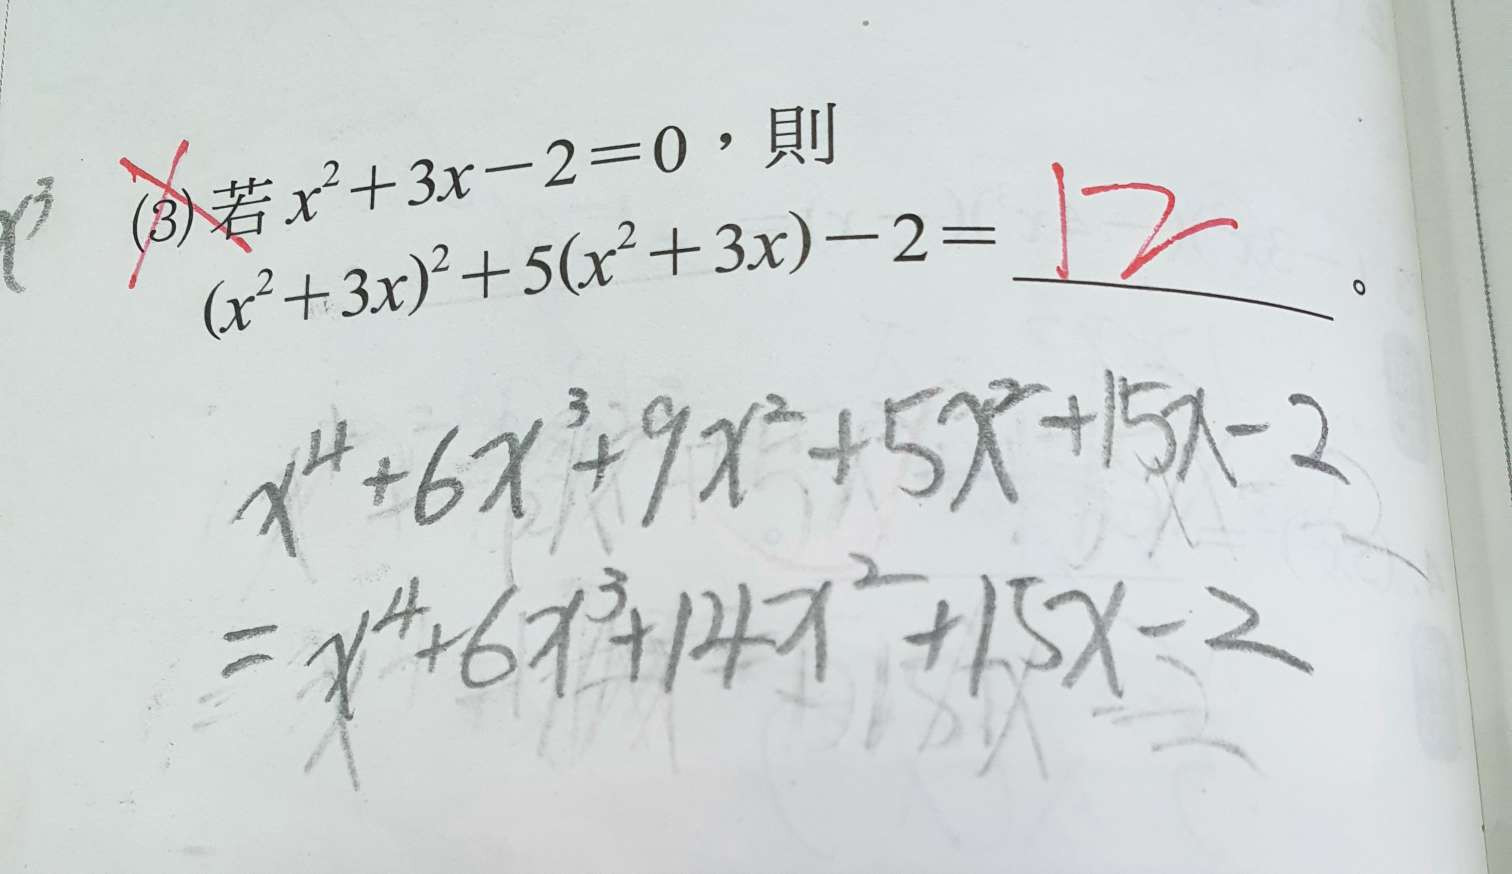 x³
(3) 若 x²+3x−2=0，則
(x²+3x)²+5(x²+3x)−2= 12 。
x⁴+6x³+9x²+5x²+15x−2
=x⁴+6x³+14x²+15x−2